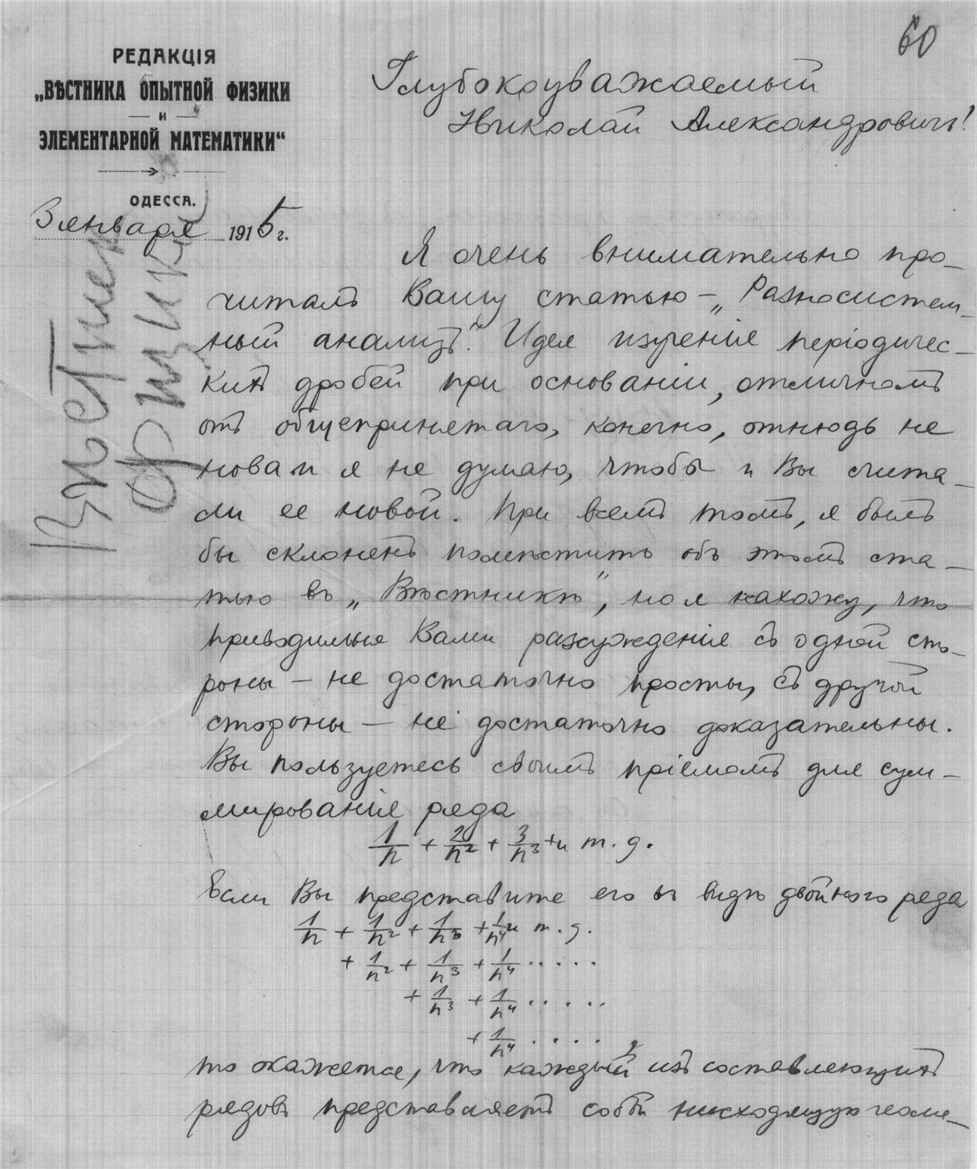 60
РЕДАКЦІЯ
„ВѢСТНИКА ОПЫТНОЙ ФИЗИКИ
— и —
ЭЛЕМЕНТАРНОЙ МАТЕМАТИКИ“
ОДЕССА.
3 января 1915 г.
Вѣстник
Физики
Глубокоуважаемый
Николай Александровичъ!
Я очень внимательно про-
читалъ Вашу статью – „Разносистем-
ный анализъ“. Идея изученія періодичес-
кихъ дробей при основаніи, отличномъ
отъ общепринятаго, конечно, отнюдь не
новая и я не думаю, чтобы и Вы счита-
ли ее новой. При всемъ томъ, я былъ
бы склоненъ помѣстить объ этомъ ста-
тью въ „Вѣстникѣ“, но я нахожу, что
приводимыя Вами разсужденія съ одной сто-
роны – не достаточно просты, съ другой
стороны – не достаточно доказательны.
Вы пользуетесь своимъ пріемомъ для сум-
мированія ряда
1/n + 2/n² + 3/n³ + и т. д.
Если Вы представите его въ видѣ двойного ряда
1/n + 1/n² + 1/n³ + 1/n⁴ и т. д.
+ 1/n² + 1/n³ + 1/n⁴ . . . . .
+ 1/n³ + 1/n⁴ . . . . .
+ 1/n⁴ . . . . ,
то окажется, что каждый изъ составляющихъ
рядовъ представляетъ собой нисходящую геоме-